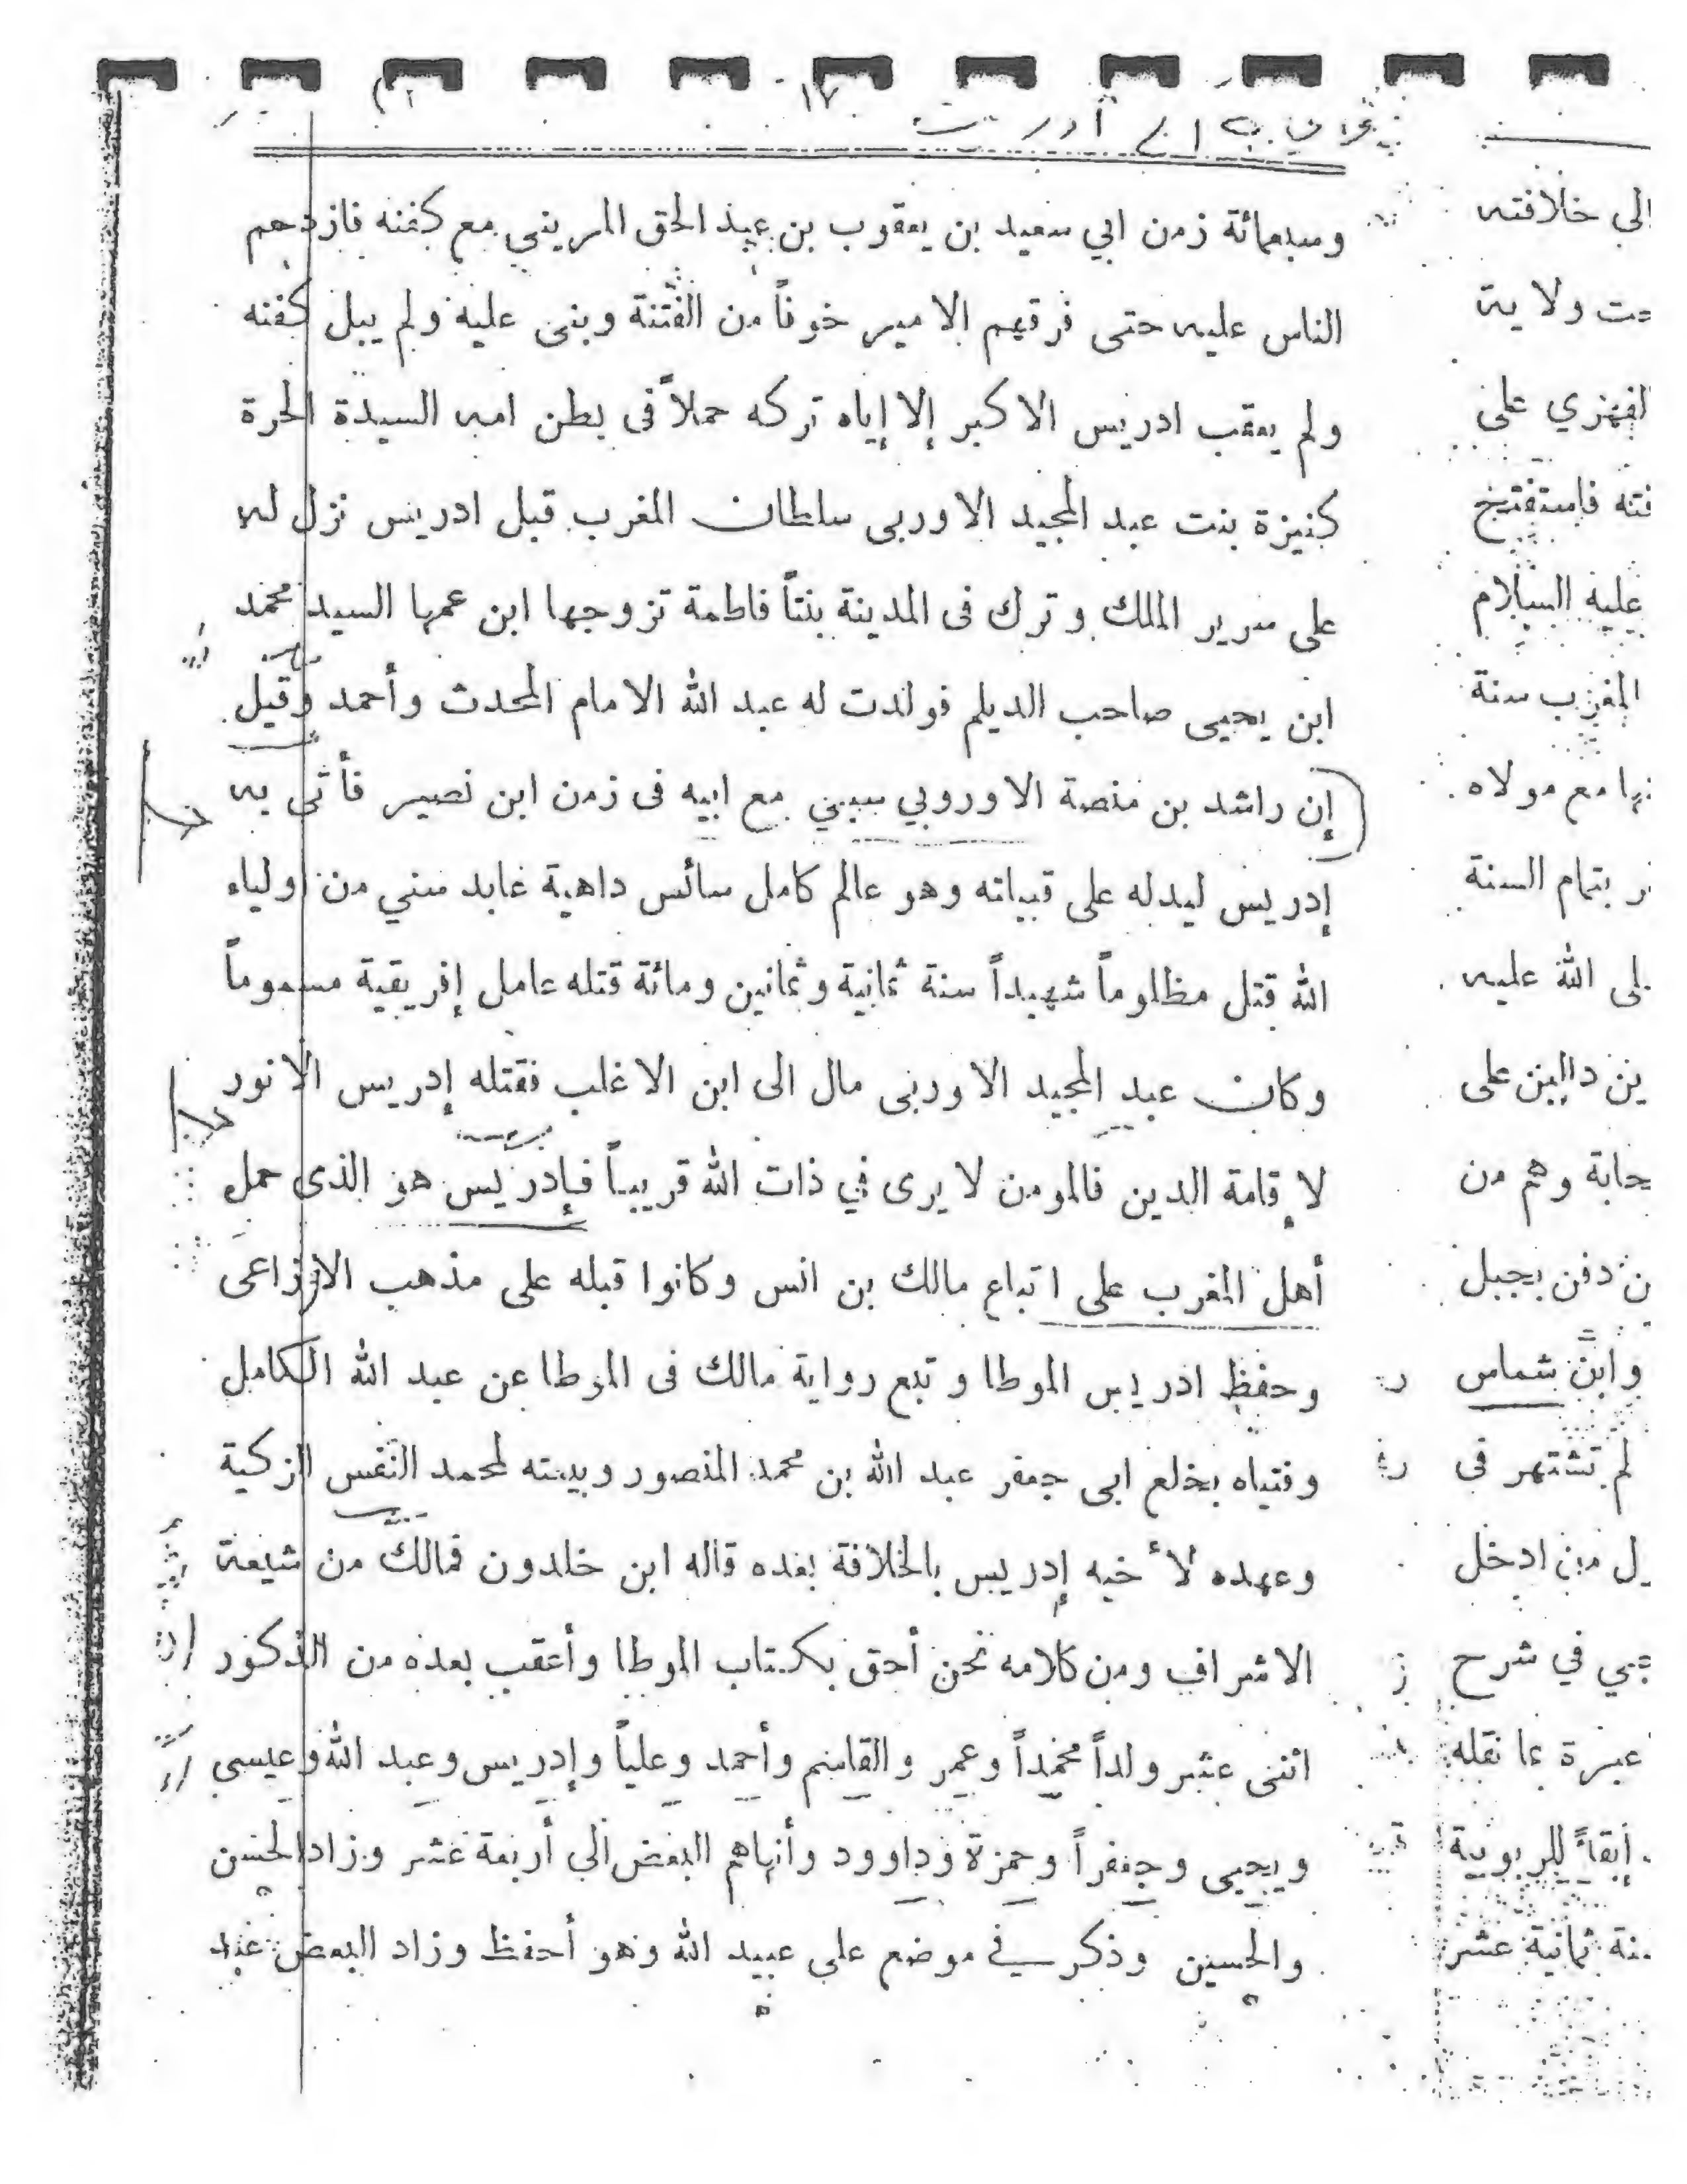 ١٧
وسبعمائة زمن ابي سعيد بن يعقوب بن عبد الحق المريني مع كفنه فازدحم
الناس عليه حتى فرقهم الامير خوفاً من الفتنة وبنى عليه ولم يبل كفنه
ولم يعقب ادريس الاكبر إلا إياه تركه حملاً فى بطن امه السيدة الحرة
كنيزة بنت عبد المجيد الاوربى سلطان المغرب قبل ادريس نزل له
على سرير الملك وترك فى المدينة بنتاً فاطمة تزوجها ابن عمها السيد محمد
ابن يحيى صاحب الديلم فولدت له عبد الله الامام المحدث وأحمد وقيل
إن راشد بن منصة الاوروبي سبي مع ابيه فى زمن ابن نصير فأتى به
إدريس ليدله على قبيلته وهو عالم كامل سائس داهية عابد سني من اولياء
الله قتل مظلوماً شهيداً سنة ثمانية وثمانين ومائة قتله عامل إفريقية مسموماً
وكان عبد المجيد الاوربى مال الى ابن الاغلب فقتله إدريس الانور
لإقامة الدين فالمومن لا يرى في ذات الله قريباً فإدريس هو الذى حمل
أهل المغرب على اتباع مالك بن انس وكانوا قبله على مذهب الاوزاعى
وحفظ ادريس الموطا وتبع رواية مالك فى الموطا عن عبد الله الكامل
وفتياه بخلع ابى جعفر عبد الله بن محمد المنصور وبيعته لمحمد النفس الزكية
وعهده لأخيه إدريس بالخلافة بعده قاله ابن خلدون فمالك من شيعة
الاشراف ومن كلامه نحن أحق بكتاب الموطا وأعقب بعده من الذكور
اثنى عشر ولداً محمداً وعمر والقاسم وأحمد وعلياً وإدريس وعبد الله وعيسى
ويحيى وجعفراً وحمزة وداوود وأنهاهم البعض الى أربعة عشر وزاد الحسن
والحسين وذكر في موضع على عبيد الله وهو أحفظ وزاد البعض عبد
الى خلافته
ولاية
الفهري على
فاستفتح
عليه السلام
المغرب سنة
مع مولاه
بتمام السنة
الله عليه
دالين على
وهم من
دفن بجبل
وابن شماس
لم تشتهر فى
ادخل
في شرح
نقله
للربوبية
ثمانية عشر